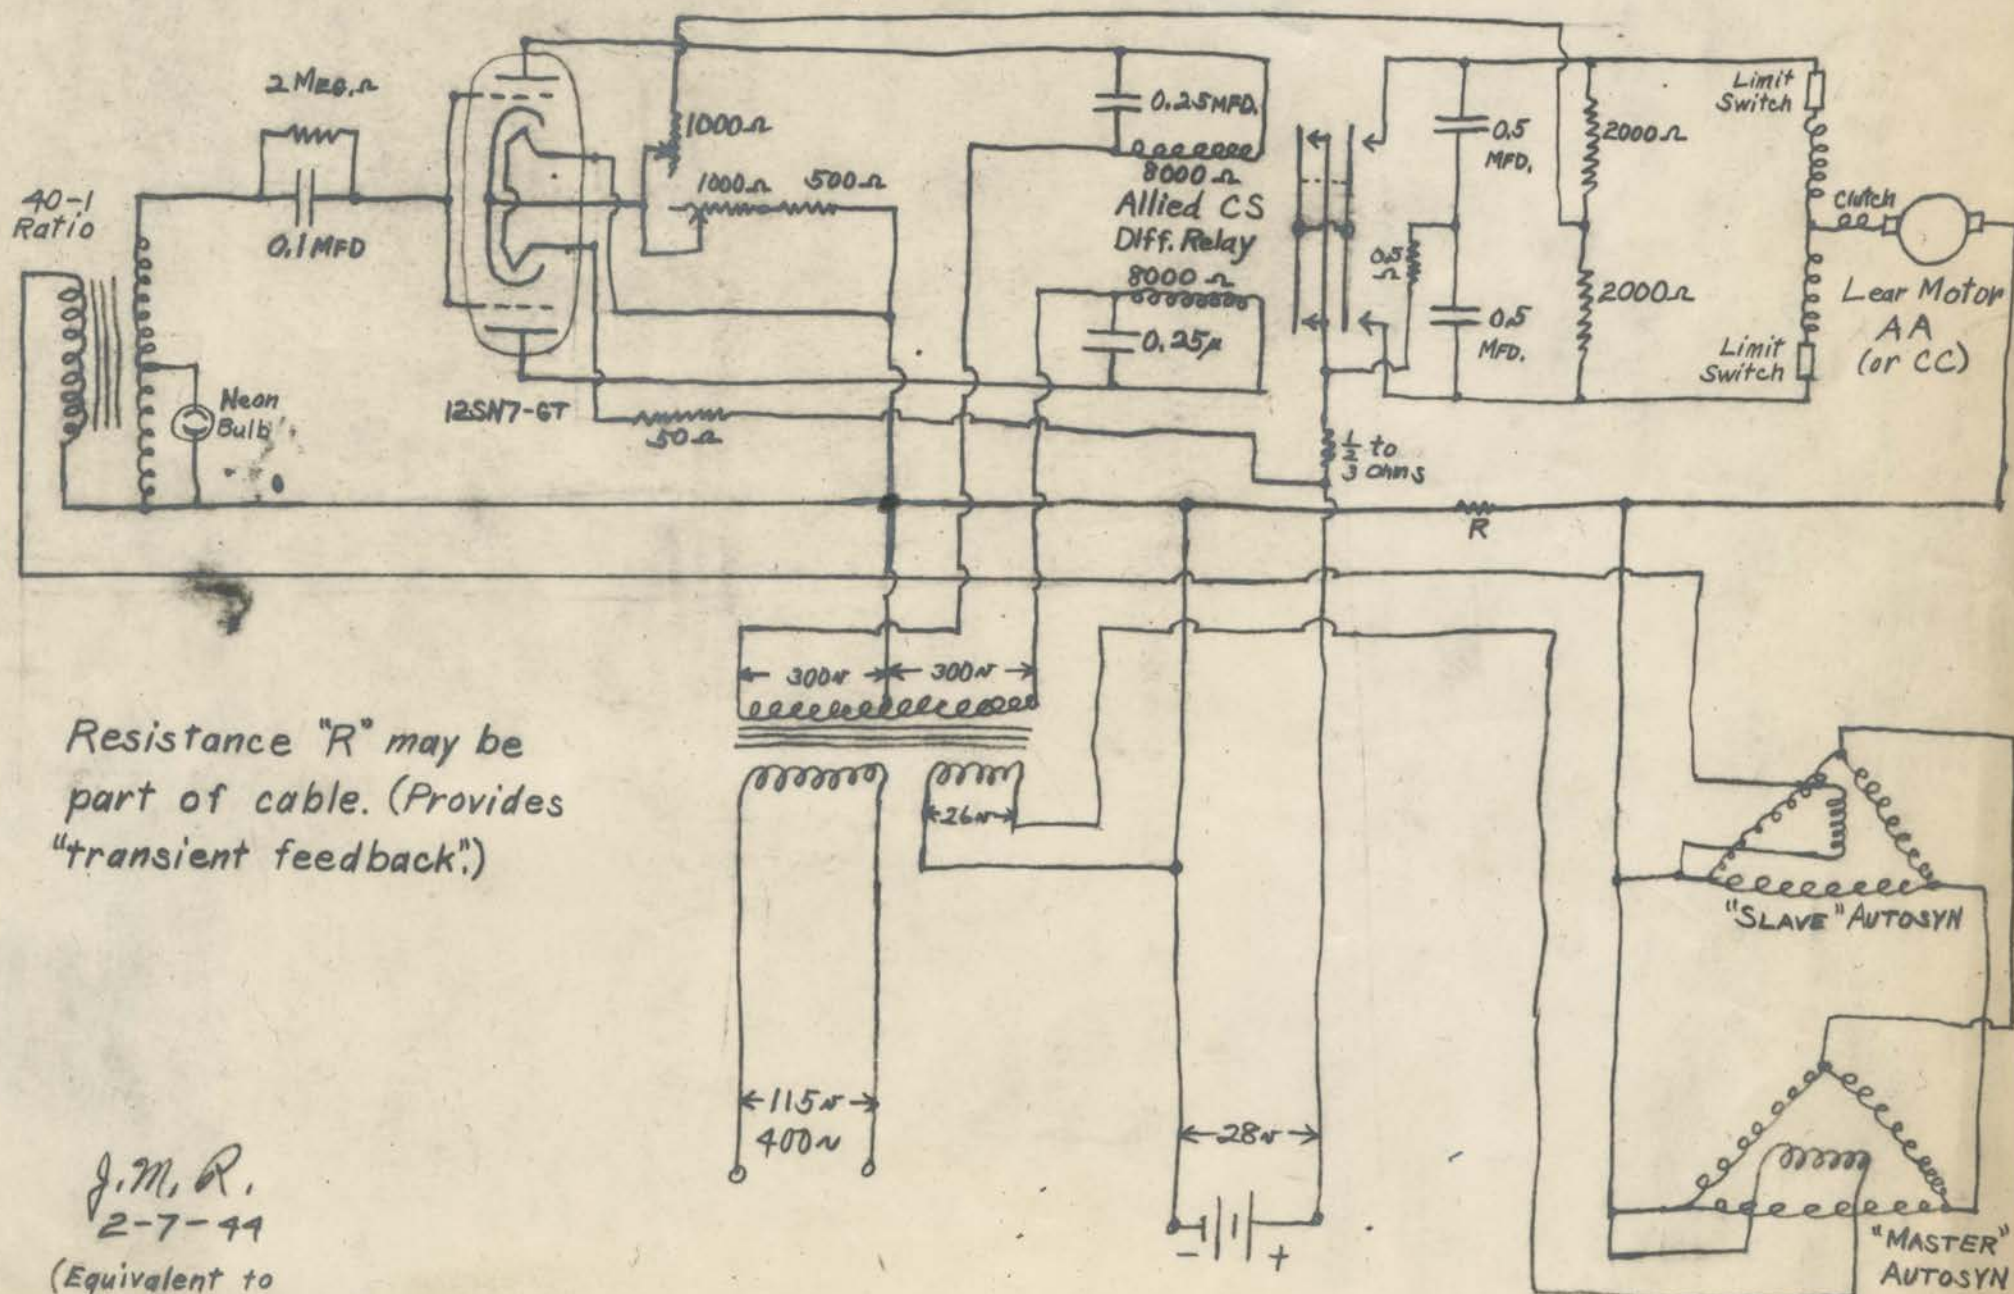 2 MEG.Ω
40-1
Ratio
0.1 MFD
Neon
Bulb
12SN7-GT
1000Ω
1000Ω 500Ω
50Ω
0.25 MFD.
8000Ω
Allied CS
Diff. Relay
8000Ω
0.25μ
0.5
Ω
0.5
MFD.
0.5
MFD.
2000Ω
2000Ω
Limit
Switch
Clutch
Lear Motor
AA
(or CC)
Limit
Switch
1/2 to
3 Ohms
R
300v 300v
26v
115v
400~
28v
- +
Resistance "R" may be
part of cable. (Provides
"transient feedback".)
"SLAVE" AUTOSYN
"MASTER"
AUTOSYN
J.M.R.
2-7-44
(Equivalent to